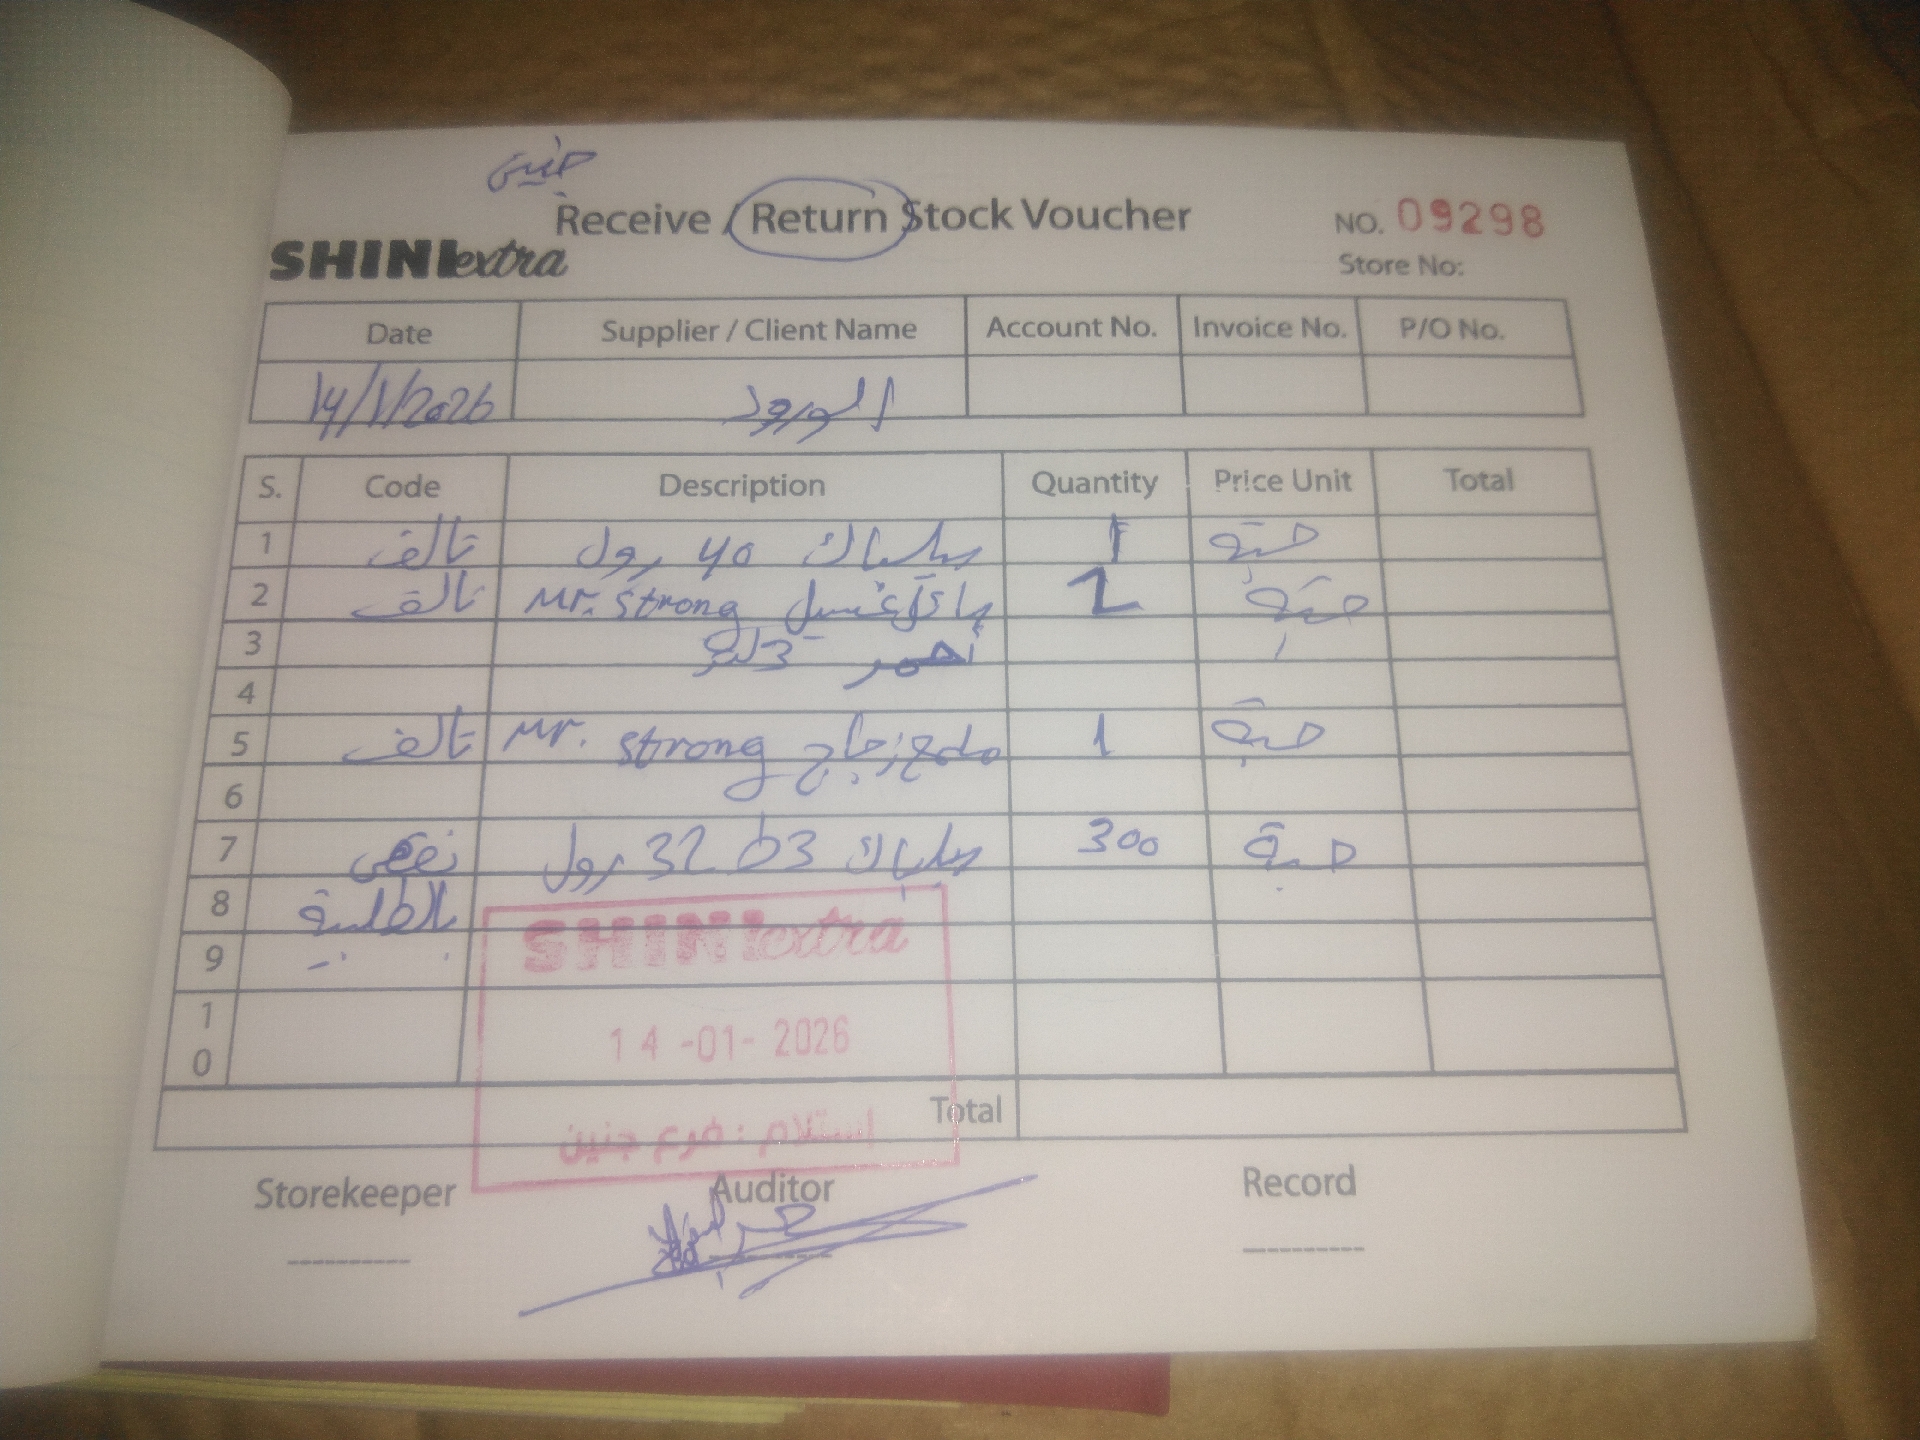 جنين
Receive / Return Stock Voucher
NO. 09298
SHINI extra
Store No:
Date Supplier / Client Name Account No. Invoice No. P/O No.
14/1/2026 الورود
S. Code Description Quantity Price Unit Total
1 تالف 40 رول 1 حبة
2 تالف غسيل Mr. Strong 2 حبة
3 أحمر 3 لتر
4
5 تالف ملمع زجاج Mr. strong 1 حبة
6
7 نقص 32 رول 300 حبة
8 بالطلبية
9
10
SHINI extra
14 -01- 2026
Total
استلام : فرع جنين
Storekeeper Auditor Record